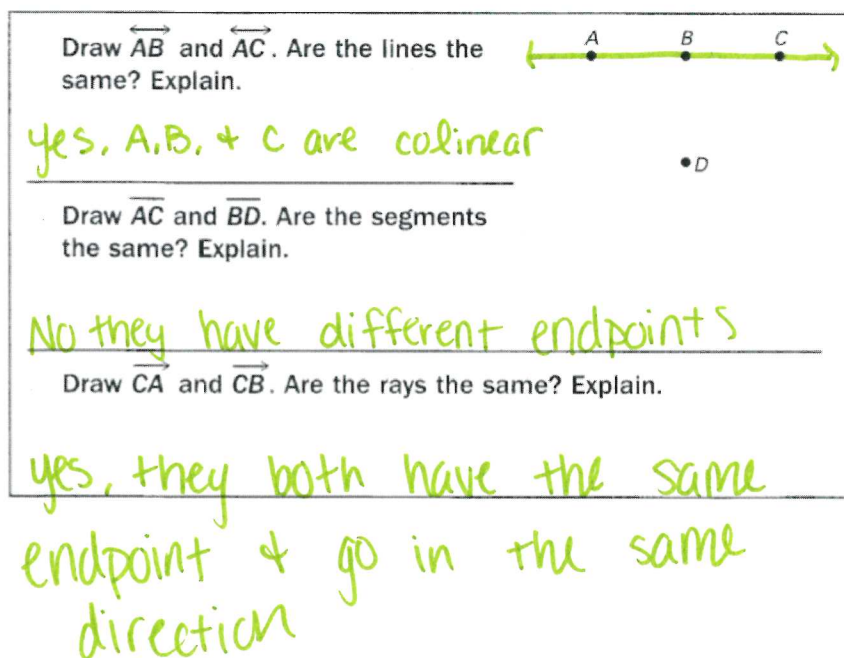 Draw AB and AC. Are the lines the
same? Explain.
A B C
yes, A, B, & C are colinear
D
Draw AC and BD. Are the segments
the same? Explain.
No they have different endpoints
Draw CA and CB. Are the rays the same? Explain.
yes, they both have the same
endpoint & go in the same
direction